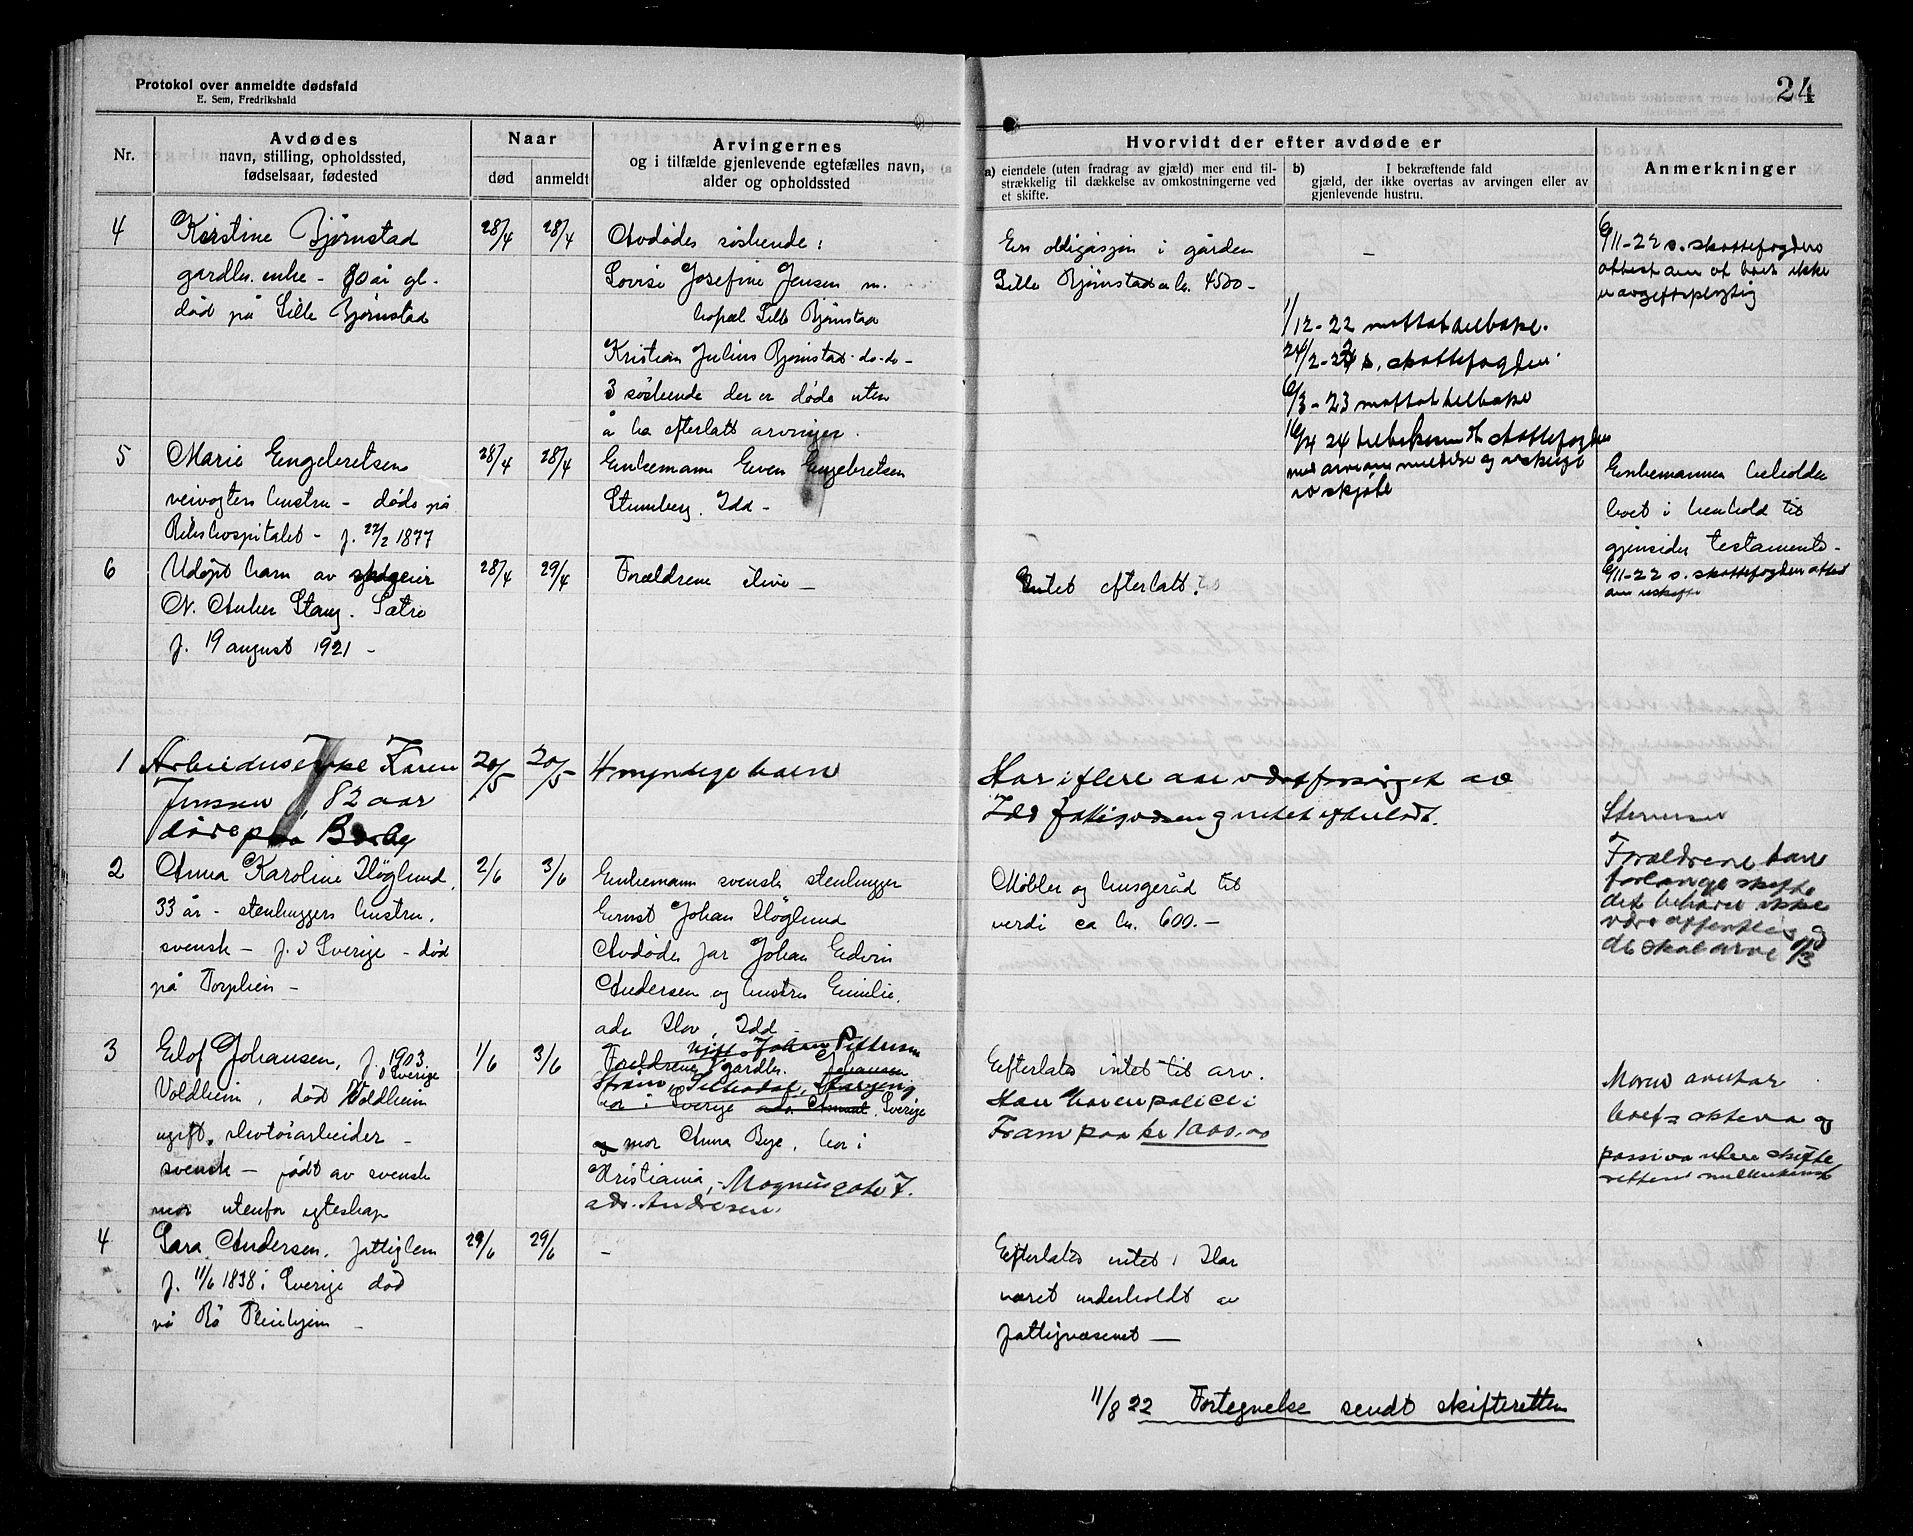 Protokol over anmeldte dødsfald
E. Sem, Fredrikshald
24
Nr.
Avdødes
navn, stilling, opholdssted,
fødselsaar, fødested
Naar
død
anmeldt
Arvingernes
og i tilfælde gjenlevende egtefælles navn,
alder og opholdssted
Hvorvidt der efter avdøde er
a) eiendele (uten fradrag av gjæld) mer end til-
strækkelig til dækkelse av omkostningerne ved
et skifte.
b) I bekræftende fald
gjæld, der ikke overtas av arvingen eller av
gjenlevende hustru.
Anmerkninger
4
Kirstine Bjørnstad
gardbr. enke - 80 år gl.
død på Lille Bjørnstad
28/4
28/4
Avdødes søskende:
Lovise Josefine Jensen m.
bopæl Lille Bjørnstad
Kristian Julius Bjørnstad - do-do-
3 søskende der er døde uten
å ha efterlatt arvinger.
En obligasjon i gården
Lille Bjørnstad kr. 4500-
-
1/12-22 mottat tilbake.
24/2-23 s. skattefogden
6/3-23 mottat tilbake
16/4 24 tilbake skattefogden
med arveanmeldelse og
av skjøte
6/11-22 s. skattefogdens
attest om at boet ikke
er avgiftspligtig
5
Marie Engebretsen
veivogters hustru - døde på
Rikshospitalet - f. 27/2 1877
28/4
28/4
Enkemann Even Engebretsen
Idd -
Enkemannen beholder
boet i henhold til
gjensidig testamente -
6/11-22 s. skattefogden attest
om uskifte
6
Udøpt barn av skogeier
N. Anker Stang. Sætre
f. 19 august 1921 -
28/4
29/4
Forældrene ilive -
Intet efterlatt.
1
Arbeiderske Karen
Jensen 82 aar
døde paa Berby
20/5
20/5
4 myndige barn
Har i flere aar vært forsørget av
Idd fattigvæsen og intet efterladt.
2
Anna Karoline Høglund,
33 år - stenhuggers hustru.
svensk - f. i Sverige - død
på Torplien -
2/6
3/6
Enkemann svensk stenhugger
Ernst Johan Höglund
Avdødes far Johan Edvin
Andersen og hustru Emilie.
adr. Hov, Idd -
Møbler og husgeråd til
verdi ca kr. 600.-
Forældrene kan
forlange skifte
det behøver ikke
være offentlig og
de skal arve 1/3
3
Elof Johansen, f. 1903
i Sverige
Voldheim, død Voldheim
ugift,
svensk - født av svensk
mor utenfor egteskap
1/6
3/6
Johan Pettersen
Foreldrene gardbr. Johansen
bor i Sverige Sverige
og mor Anna Bye, bor i
Kristiania, - Magnusgate 7.
adr. Andresen.
Efterlates intet til arv.
Han har en police i
Fram paa kr 1000.00
Moren overtar
boets aktiva og
passiva uten skifte
rettens mellemkomst
4
Sara Andersen, fattiglem
f. 11/6 1838 i Sverige død
på Rø Pleiehjem -
29/6
29/6
-
Efterlates intet. Har
været underholdt av
fattigvæsenet -
11/8 22 Fortegnelse sendt skifteretten